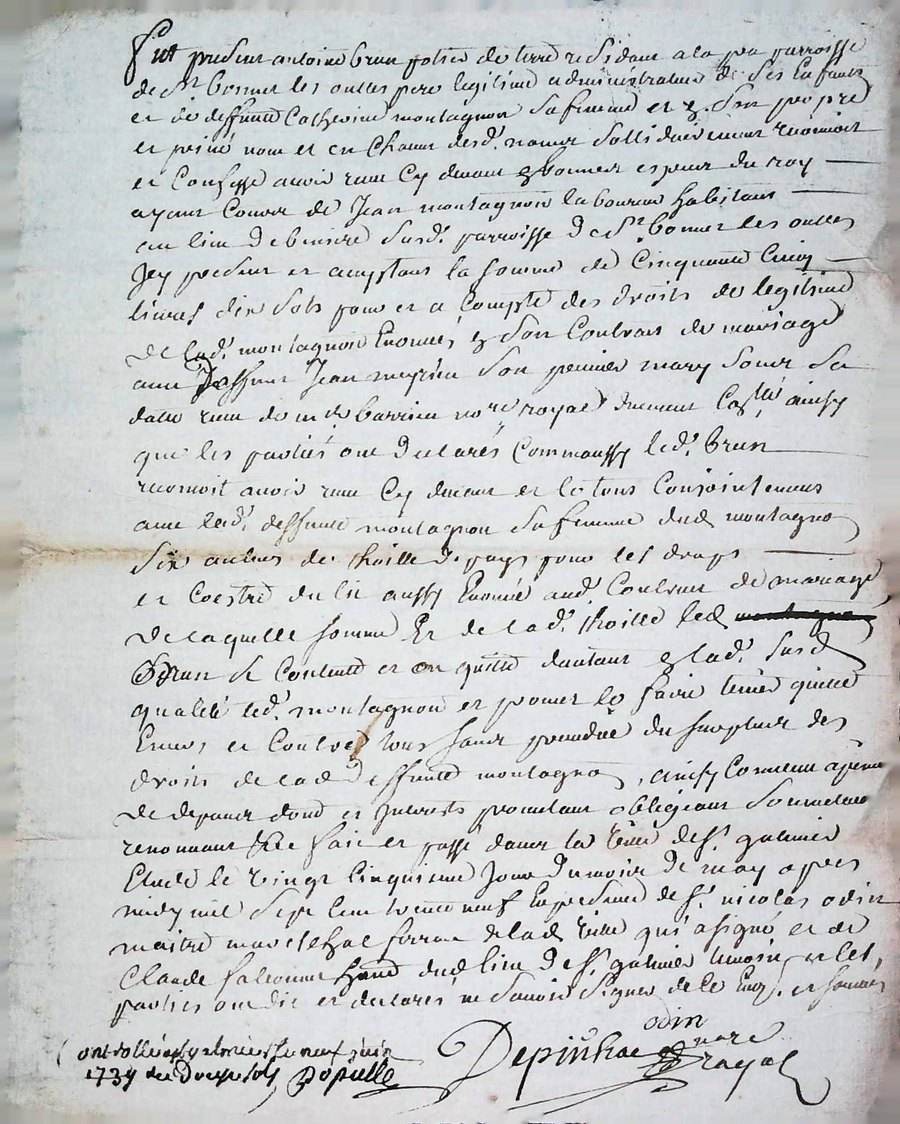 fut present antoine brun potier de terre residant a la parroisse
de St bonnet les oulles pere legitime administrateur de ses Enfants
et de deffunte Catherine montagnon sa femme et son propre
et privé nom et en chacun desd. noms sollidairement reconnoit
et Confesse avoir reçu Cy devant bonnes especes du roy
ayant Cours de Jean montagnon laboureur habitant
au lieu de susd. parroisse de St bonnet les oulles
Icy present et acceptant la somme de Cinquante Cinq
livres dix sols pour et a Compte des droits de legitime
de lad. montagnon Enoncés son Contrat de mariage
avec deffunt Jean son premier mary sous sa
datte reçu de me barrieu nore royal
que les parties ont declarés Comme aussy led. brun
reconnoit avoir reçu Cy devant et le tout Conjointement
avec lad. deffunte montagnon sa femme dud montagnon
six aulnes de thoille de pays pour les draps
et Coestre du lit aussy Enoncé aud. Contrat de mariage
de laquelle somme Et de lad. thoille led
Brun se Contente et en quitte dautant susd
qualité led. montagnon et promet le faire tenir quitte
Envers et Contre tous sans prejudice du surplus des
droits de lad deffunte montagnon, ainsy Convenu a peine
de depens et Interests promettant obligeant soumettant
renonçant fait et passé dans la ville de St galmier
Etude le vingt Cinquieme Jour du mois de may apres
midy mil sept Cent trente neuf En presence de Sr nicolas odin
maitre marechal ferrant de lad ville qui a signé et de
Claude dud lieu de St galmier temoin et les
parties ont dit et declarés ne savoir signer de ce Enq. et sommés
odin
Depinhac nore
royal
Controllé a St galmier le neuf juin
1739 Populle